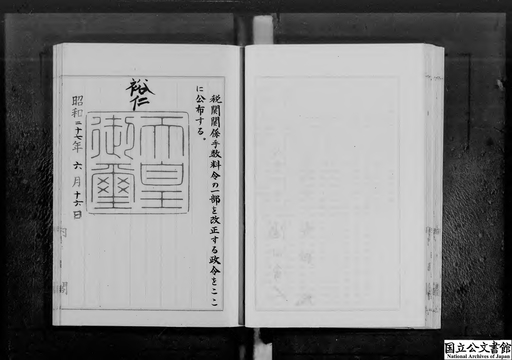 税関関係手数料令の一部を改正する政令をここ
に公布する。
裕仁
天皇
御璽
昭和二十七年六月十六日
国立公文書館
National Archives of Japan